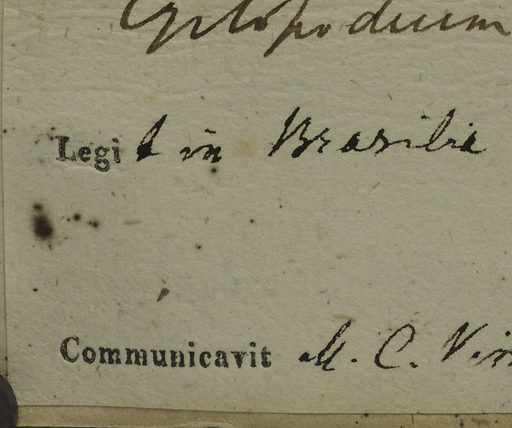 Cyrtopodium
Legit in Brasilia
Communicavit M. C. Vin